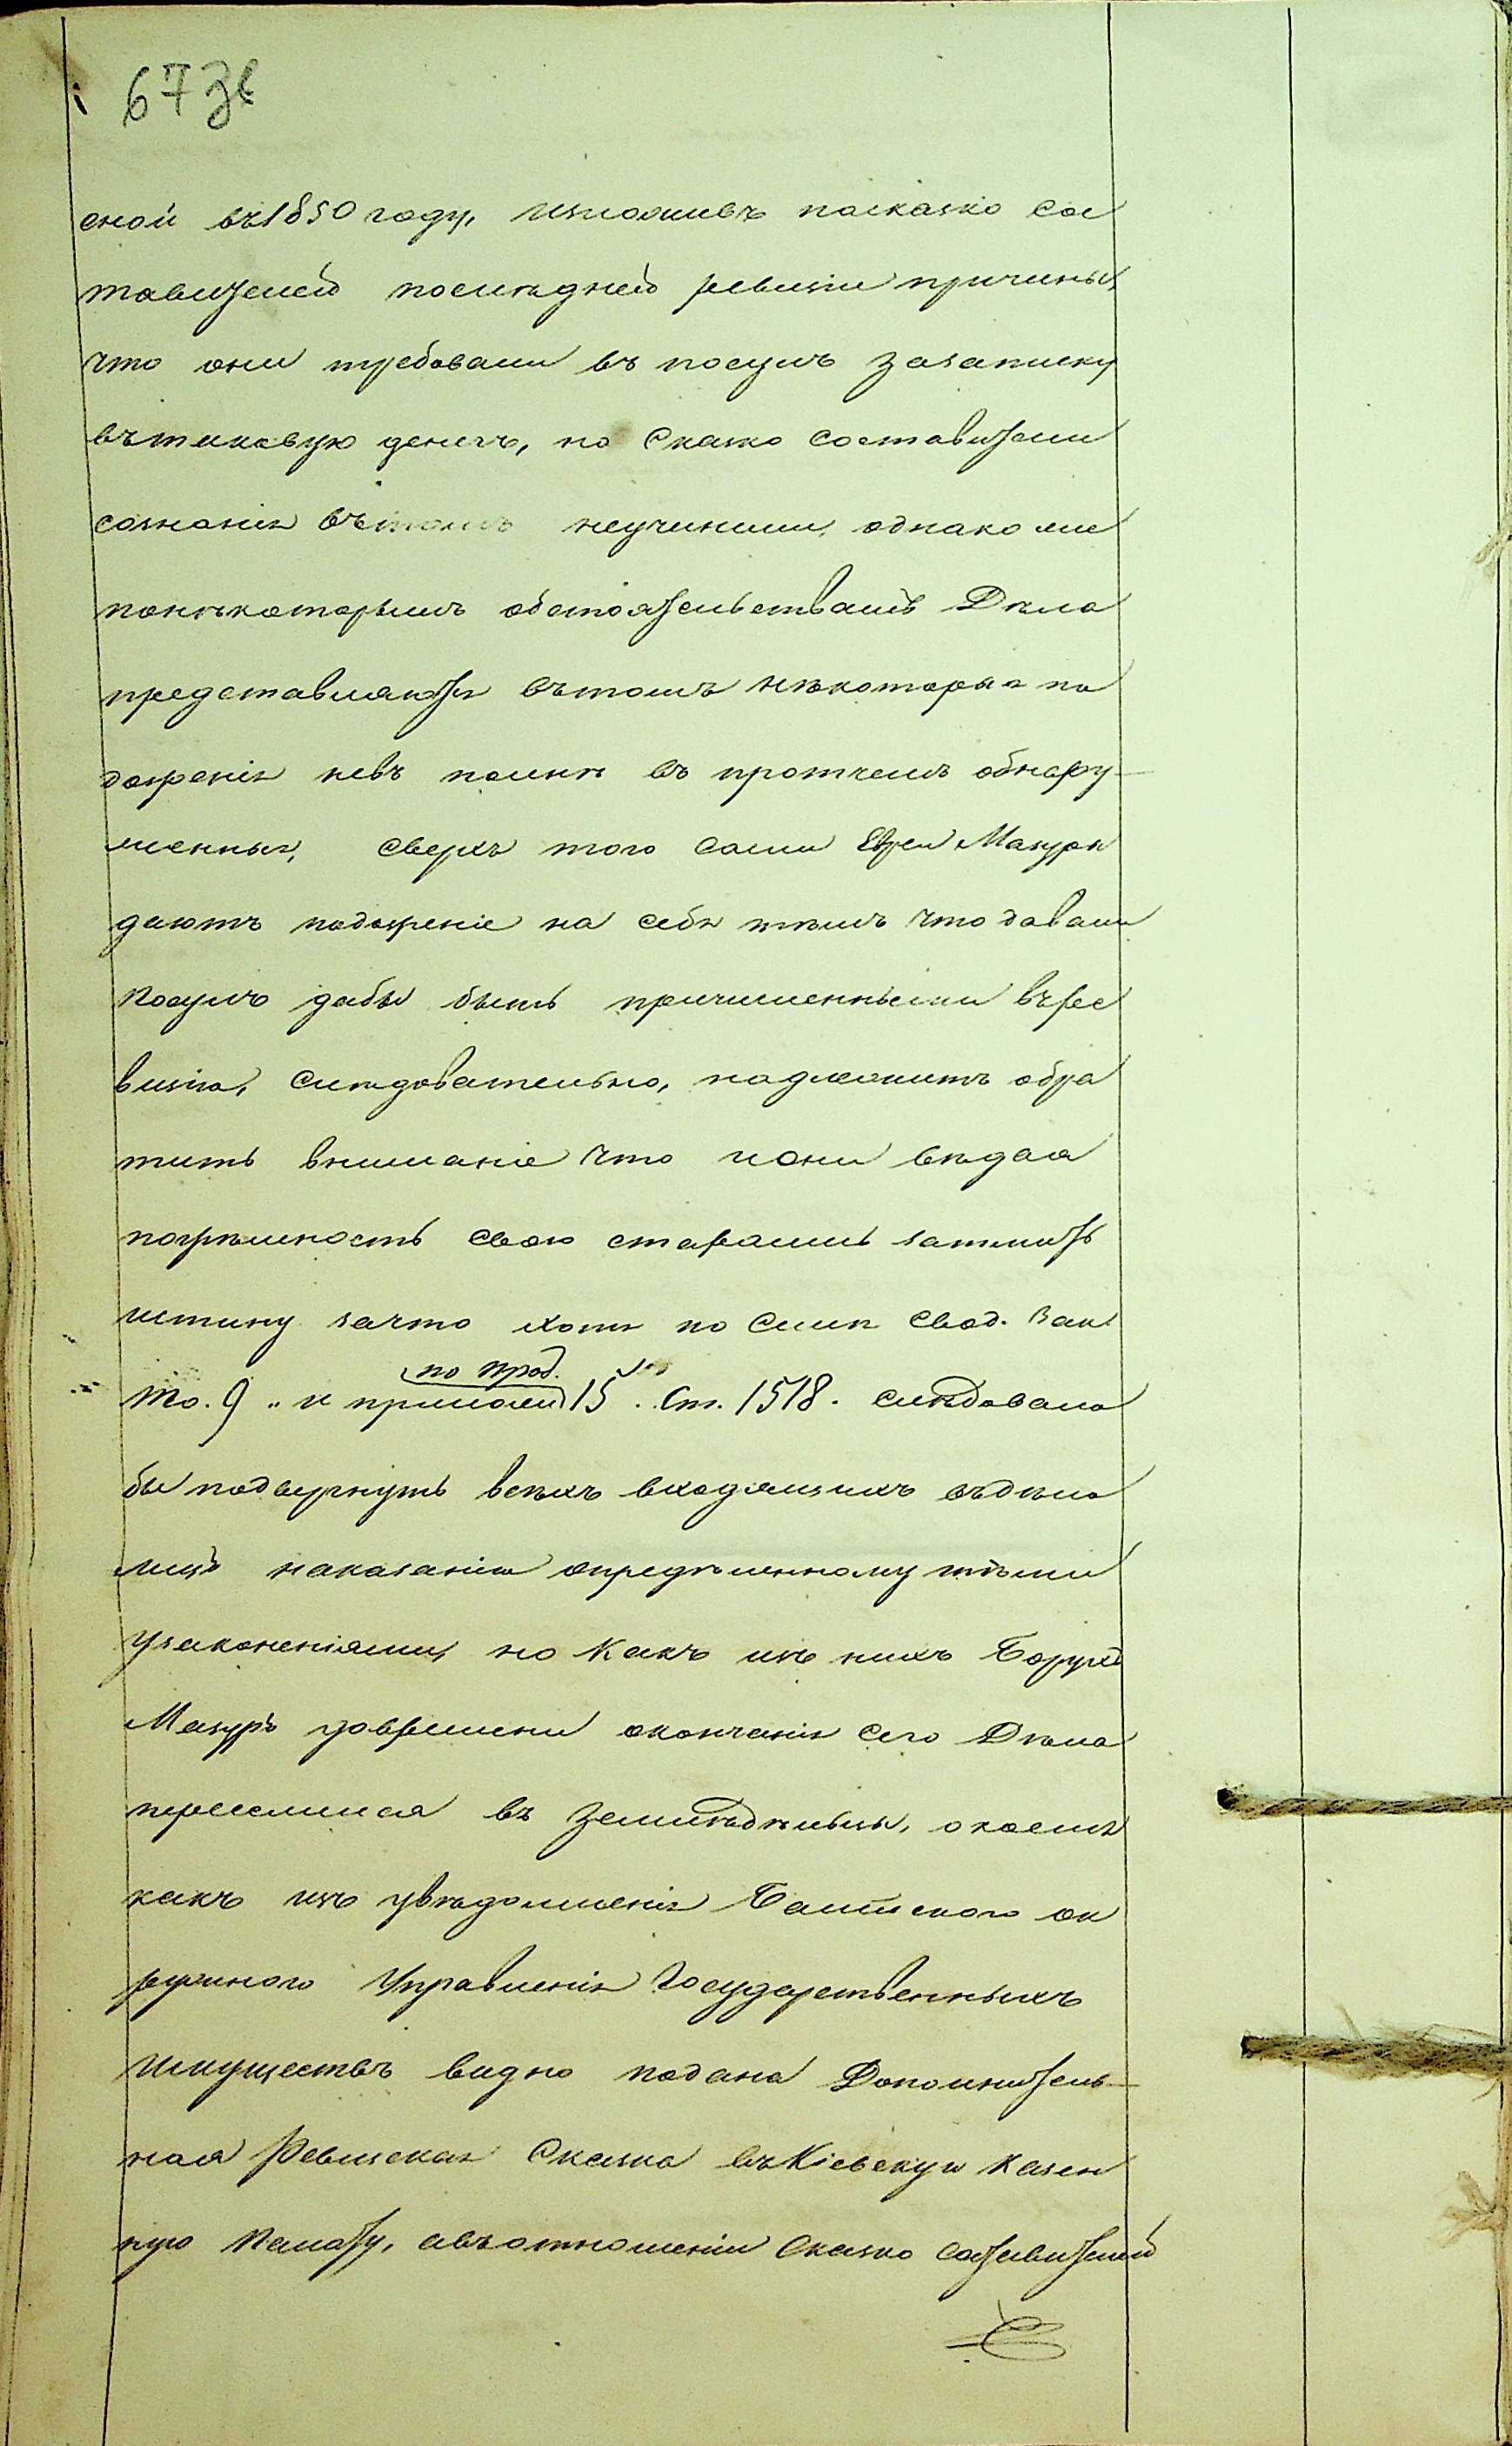 67 зв
сной въ 1850 году, изложивъ поскаско сос
тавителей последней ревизіи причины,
что они требовали въ посулъ за записку
въ таковую денегъ, но скаско составители
сознанія въ томъ неучинили, однако же
понѣкоторымъ обстоятельствамъ Дѣла
представляются въ томъ нѣкоторыя по
дозренія невъ полнѣ въ протчемъ обнару-
женныя, сверхъ того сами Евреи Мазуры
даютъ подозреніе на себя тѣмъ что давали
посулъ дабы быть причисленными въ ре
визію, слѣдовательно, надлежитъ обра
тить вниманіе что и они видая
погрѣшность свою старались затмить
истину за что хотя по силѣ свод. Зак
то. 9 „ и приложен 15. ст. 1518. слѣдовало
по прод.
бы подвергнуть всѣхъ входящихъ въ дѣло
лицъ наказанію опредѣленному тѣми
узаконеніями, но какъ изъ нихъ Борухъ
Мазуръ до времени окончанія сего Дѣла
переселился въ Земледѣльцы, о коемъ
какъ изъ увѣдомленія Балтского ок
ружного Управленія Государственныхъ
имуществъ видно подана Дополнитель-
ная Ревизская Сказка въ Кіевскую казен
ную палату, а въ отношеніи сказко составителей